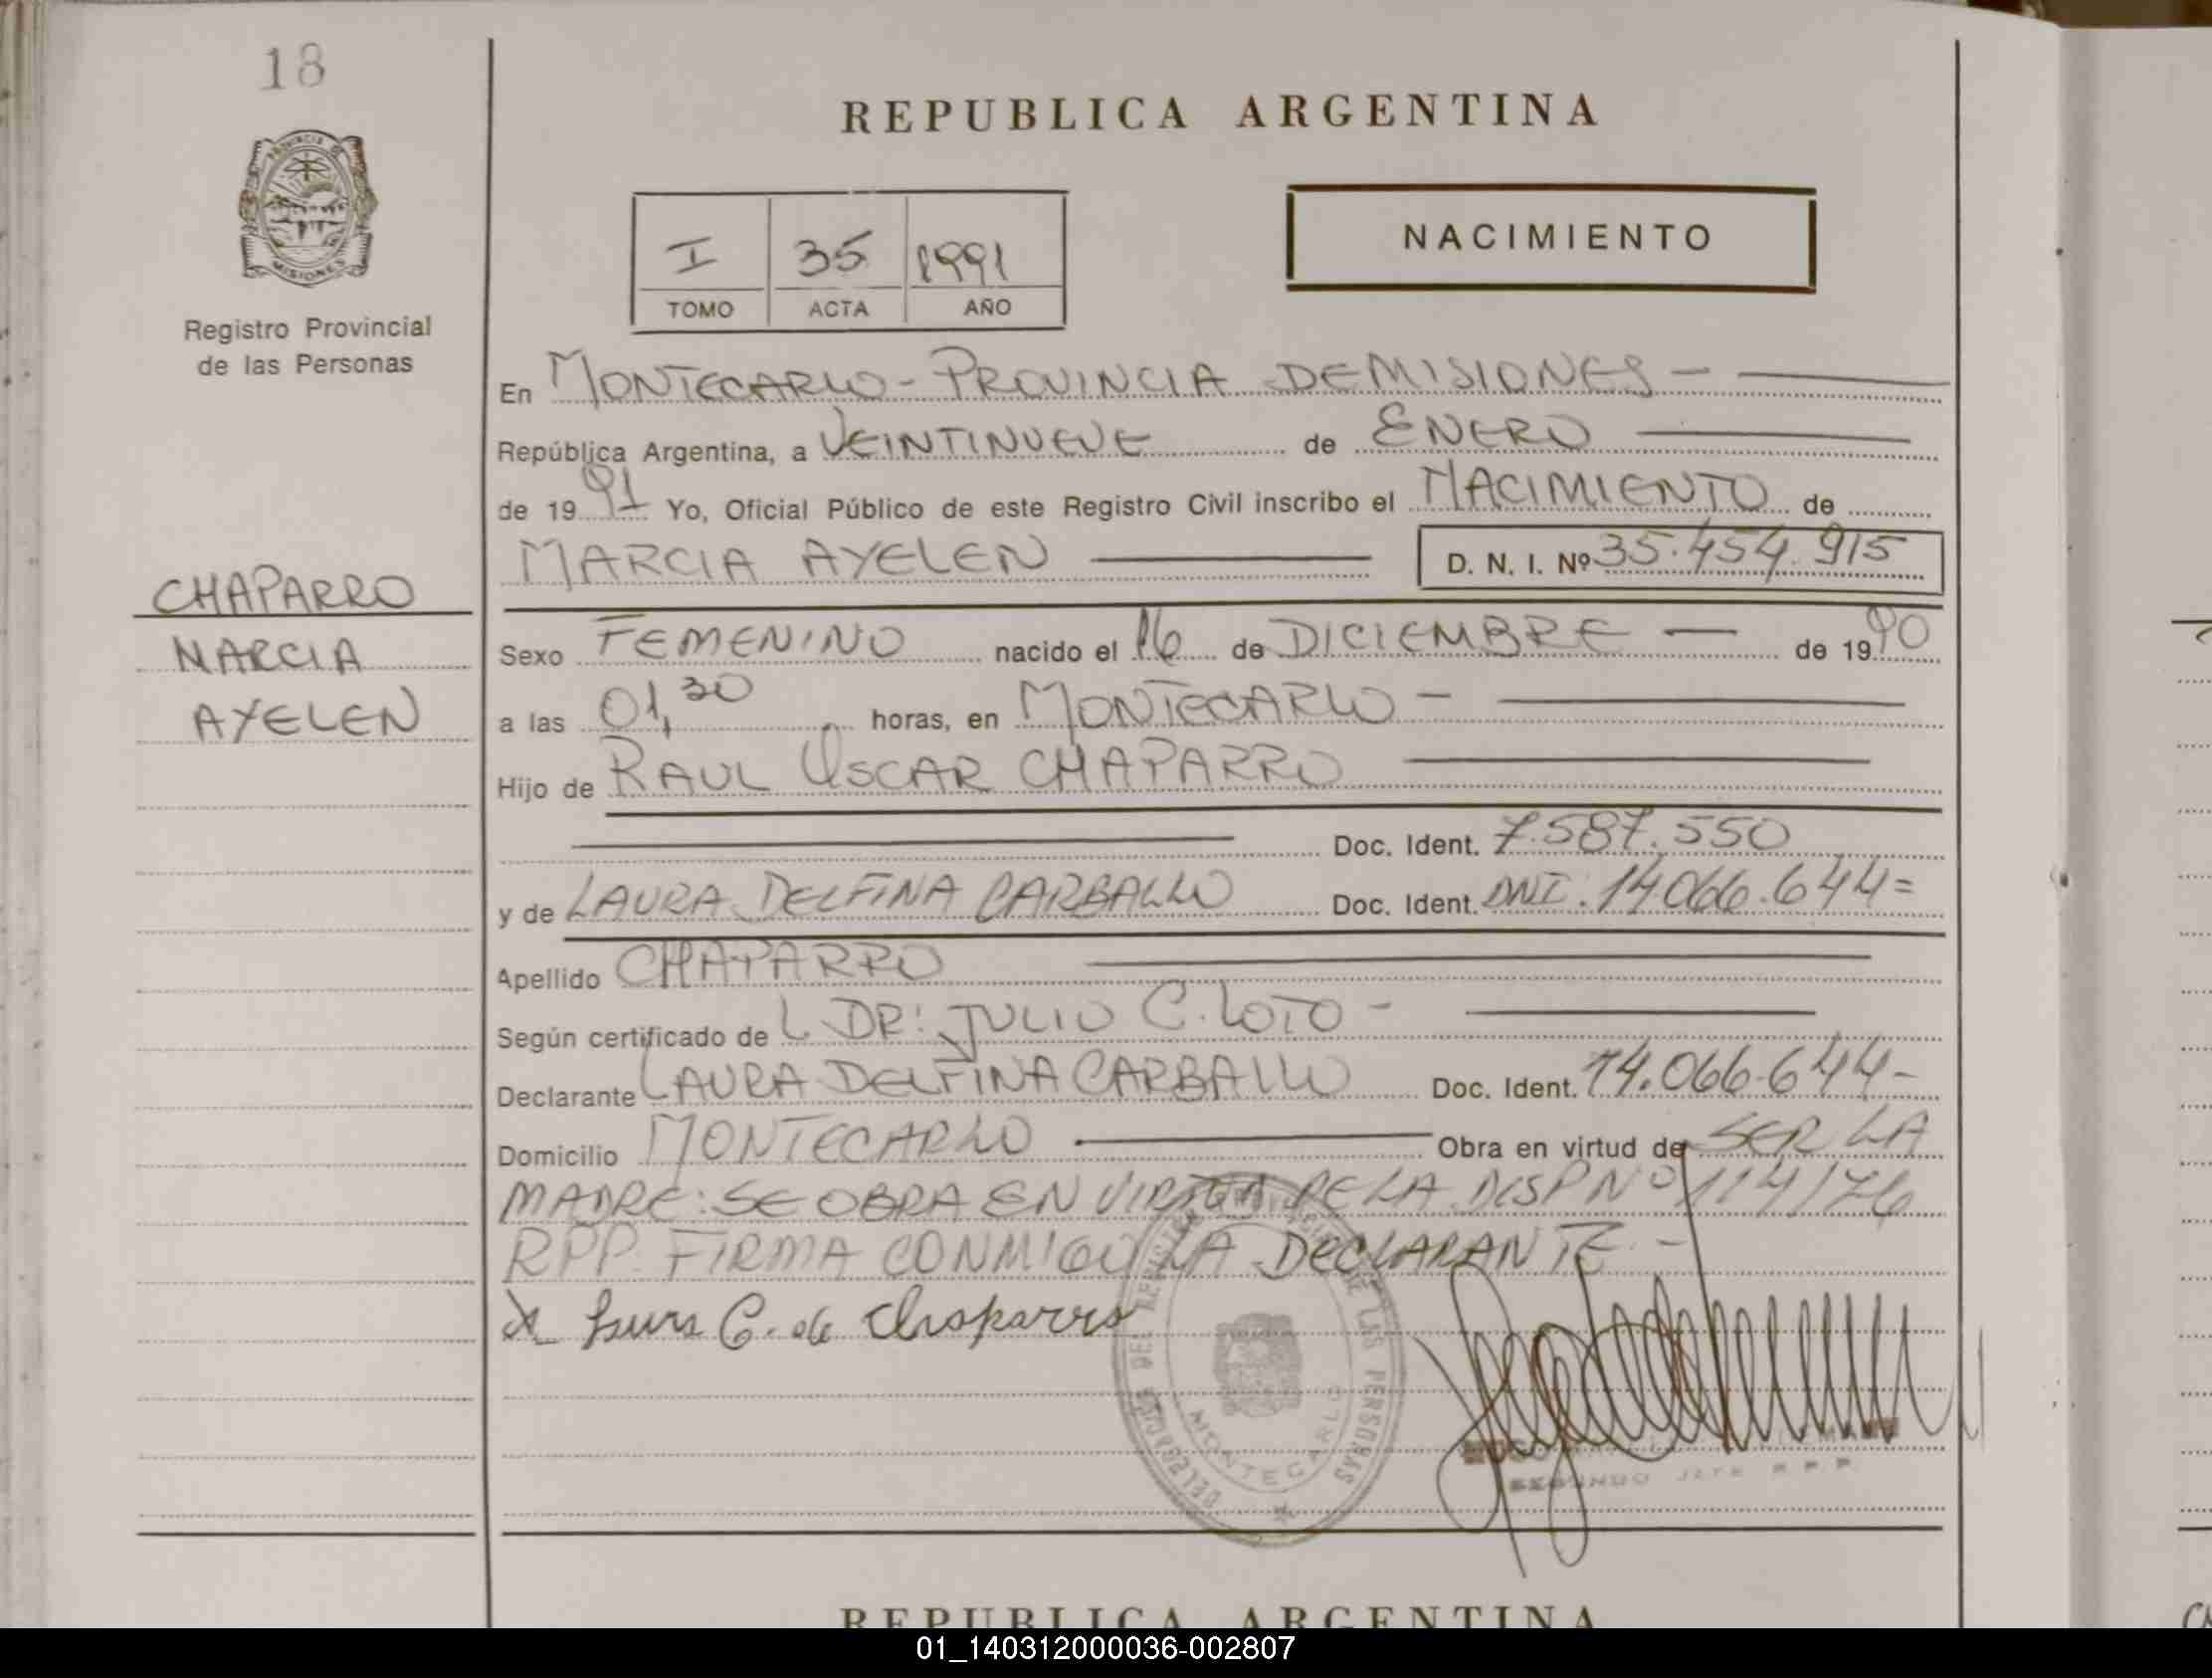 18
REPUBLICA ARGENTINA
PROVINCIA DE
MISIONES
Registro Provincial
de las Personas
I 35 1991
TOMO ACTA AÑO
NACIMIENTO
En MONTECARLO - PROVINCIA DE MISIONES -
República Argentina, a VEINTINUEVE de ENERO
de 1991 Yo, Oficial Público de este Registro Civil inscribo el NACIMIENTO de
MARCIA AYELEN D. N. I. Nº 35.454.915
CHAPARRO
MARCIA
AYELEN
Sexo FEMENINO nacido el 16 de DICIEMBRE — de 1990
a las 01,30 horas, en MONTECARLO -
Hijo de RAUL OSCAR CHAPARRO
Doc. Ident. 7.587.550
y de LAURA DELFINA CARBALLO Doc. Ident. DNI. 14.066.644=
Apellido CHAPARRO
Según certificado de L DR: JULIO C. LOTO -
Declarante LAURA DELFINA CARBALLO Doc. Ident. 14.066.644-
Domicilio MONTECARLO Obra en virtud de SER LA
MADRE: SE OBRA EN VIRTUD DE LA DISP Nº 114/76
RPP. FIRMA CONMIGO LA DECLARANTE -
x Laura C. de Chaparro
DE LAS PERSONAS
MONTECARLO
SEGUNDO JEFE R.P.P.
REPUBLICA ARGENTINA
01_140312000036-002807